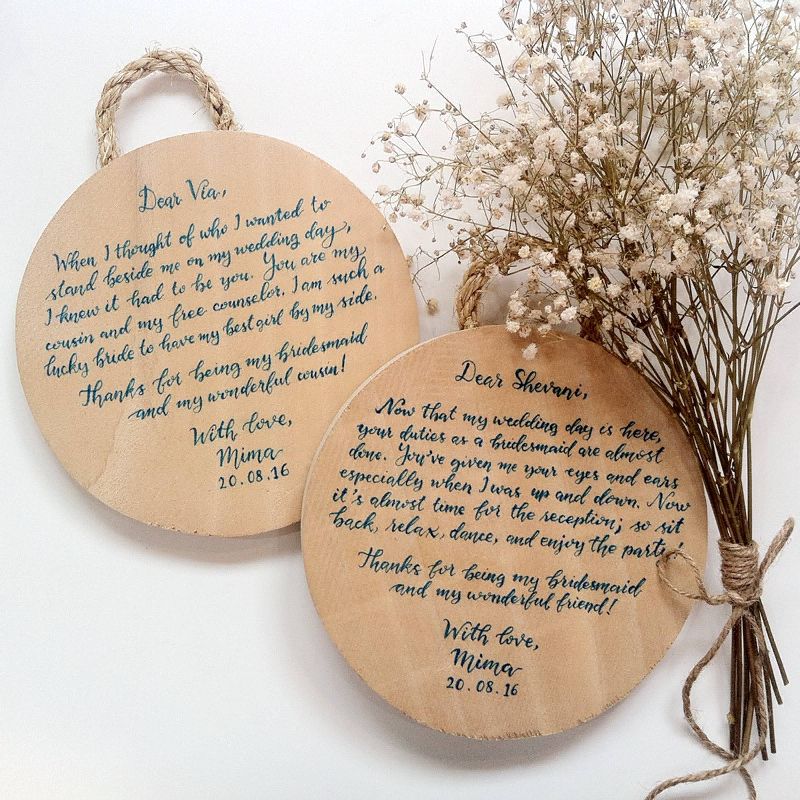 Dear Via,
When I thought of who I wanted to
stand beside me on my wedding day,
I knew it had to be you. You are my
cousin and my free counselor. I am such a
lucky bride to have my best girl by my side.
Thanks for being my bridesmaid
and my wonderful cousin!
With love,
Mima
20.08.16
Dear Shevani,
Now that my wedding day is here,
your duties as a bridesmaid are almost
done. You've given me your eyes and ears
especially when I was up and down. Now
it's almost time for the reception; so sit
back, relax, dance, and enjoy the party
Thanks for being my bridesmaid
and my wonderful friend!
With love,
Mima
20.08.16